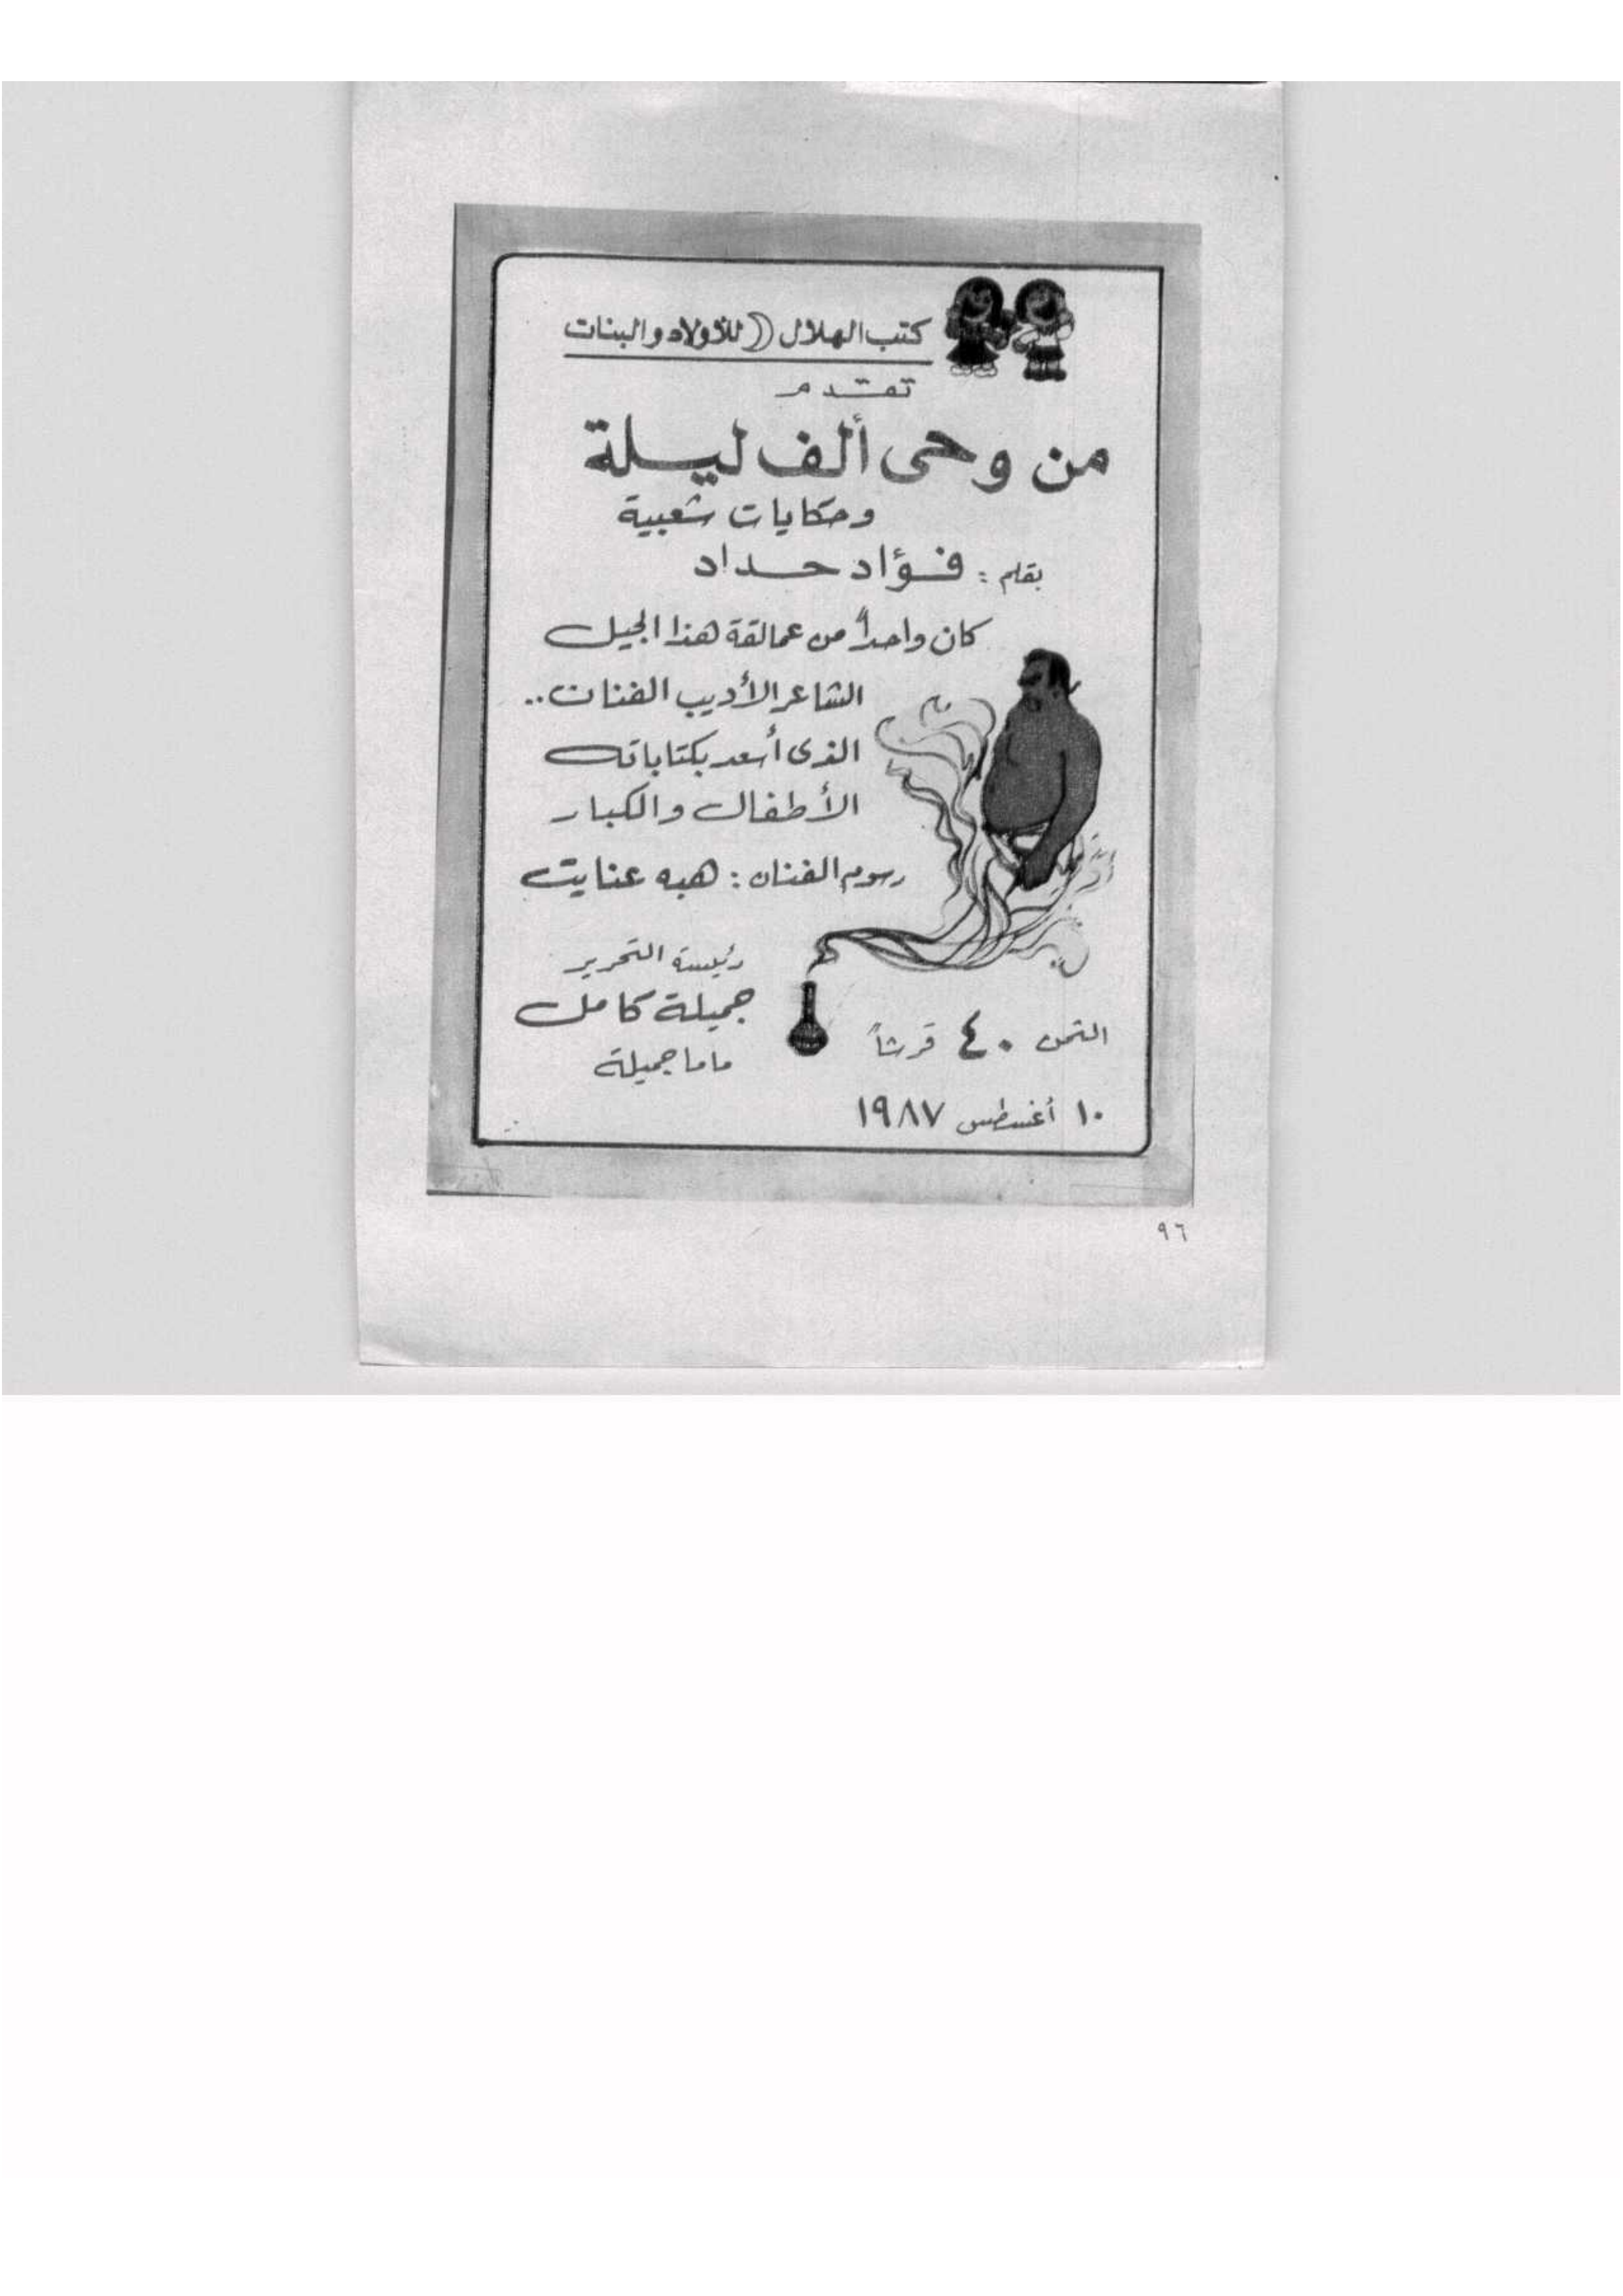 كتب الهلال للأولاد والبنات
تقدم
من وحى ألف ليلة
وحكايات شعبية
بقلم : فؤاد حداد
كان واحداً من عمالقة هذا الجيل
الشاعر الأديب الفنان ..
الذى أسعد بكتاباته
الأطفال والكبار
رسوم الفنان : هبه عنايت
رئيسة التحرير
جميلة كامل
ماما جميلة
الثمن ٤٠ قرشاً
١٠ أغسطس ١٩٨٧
٩٦